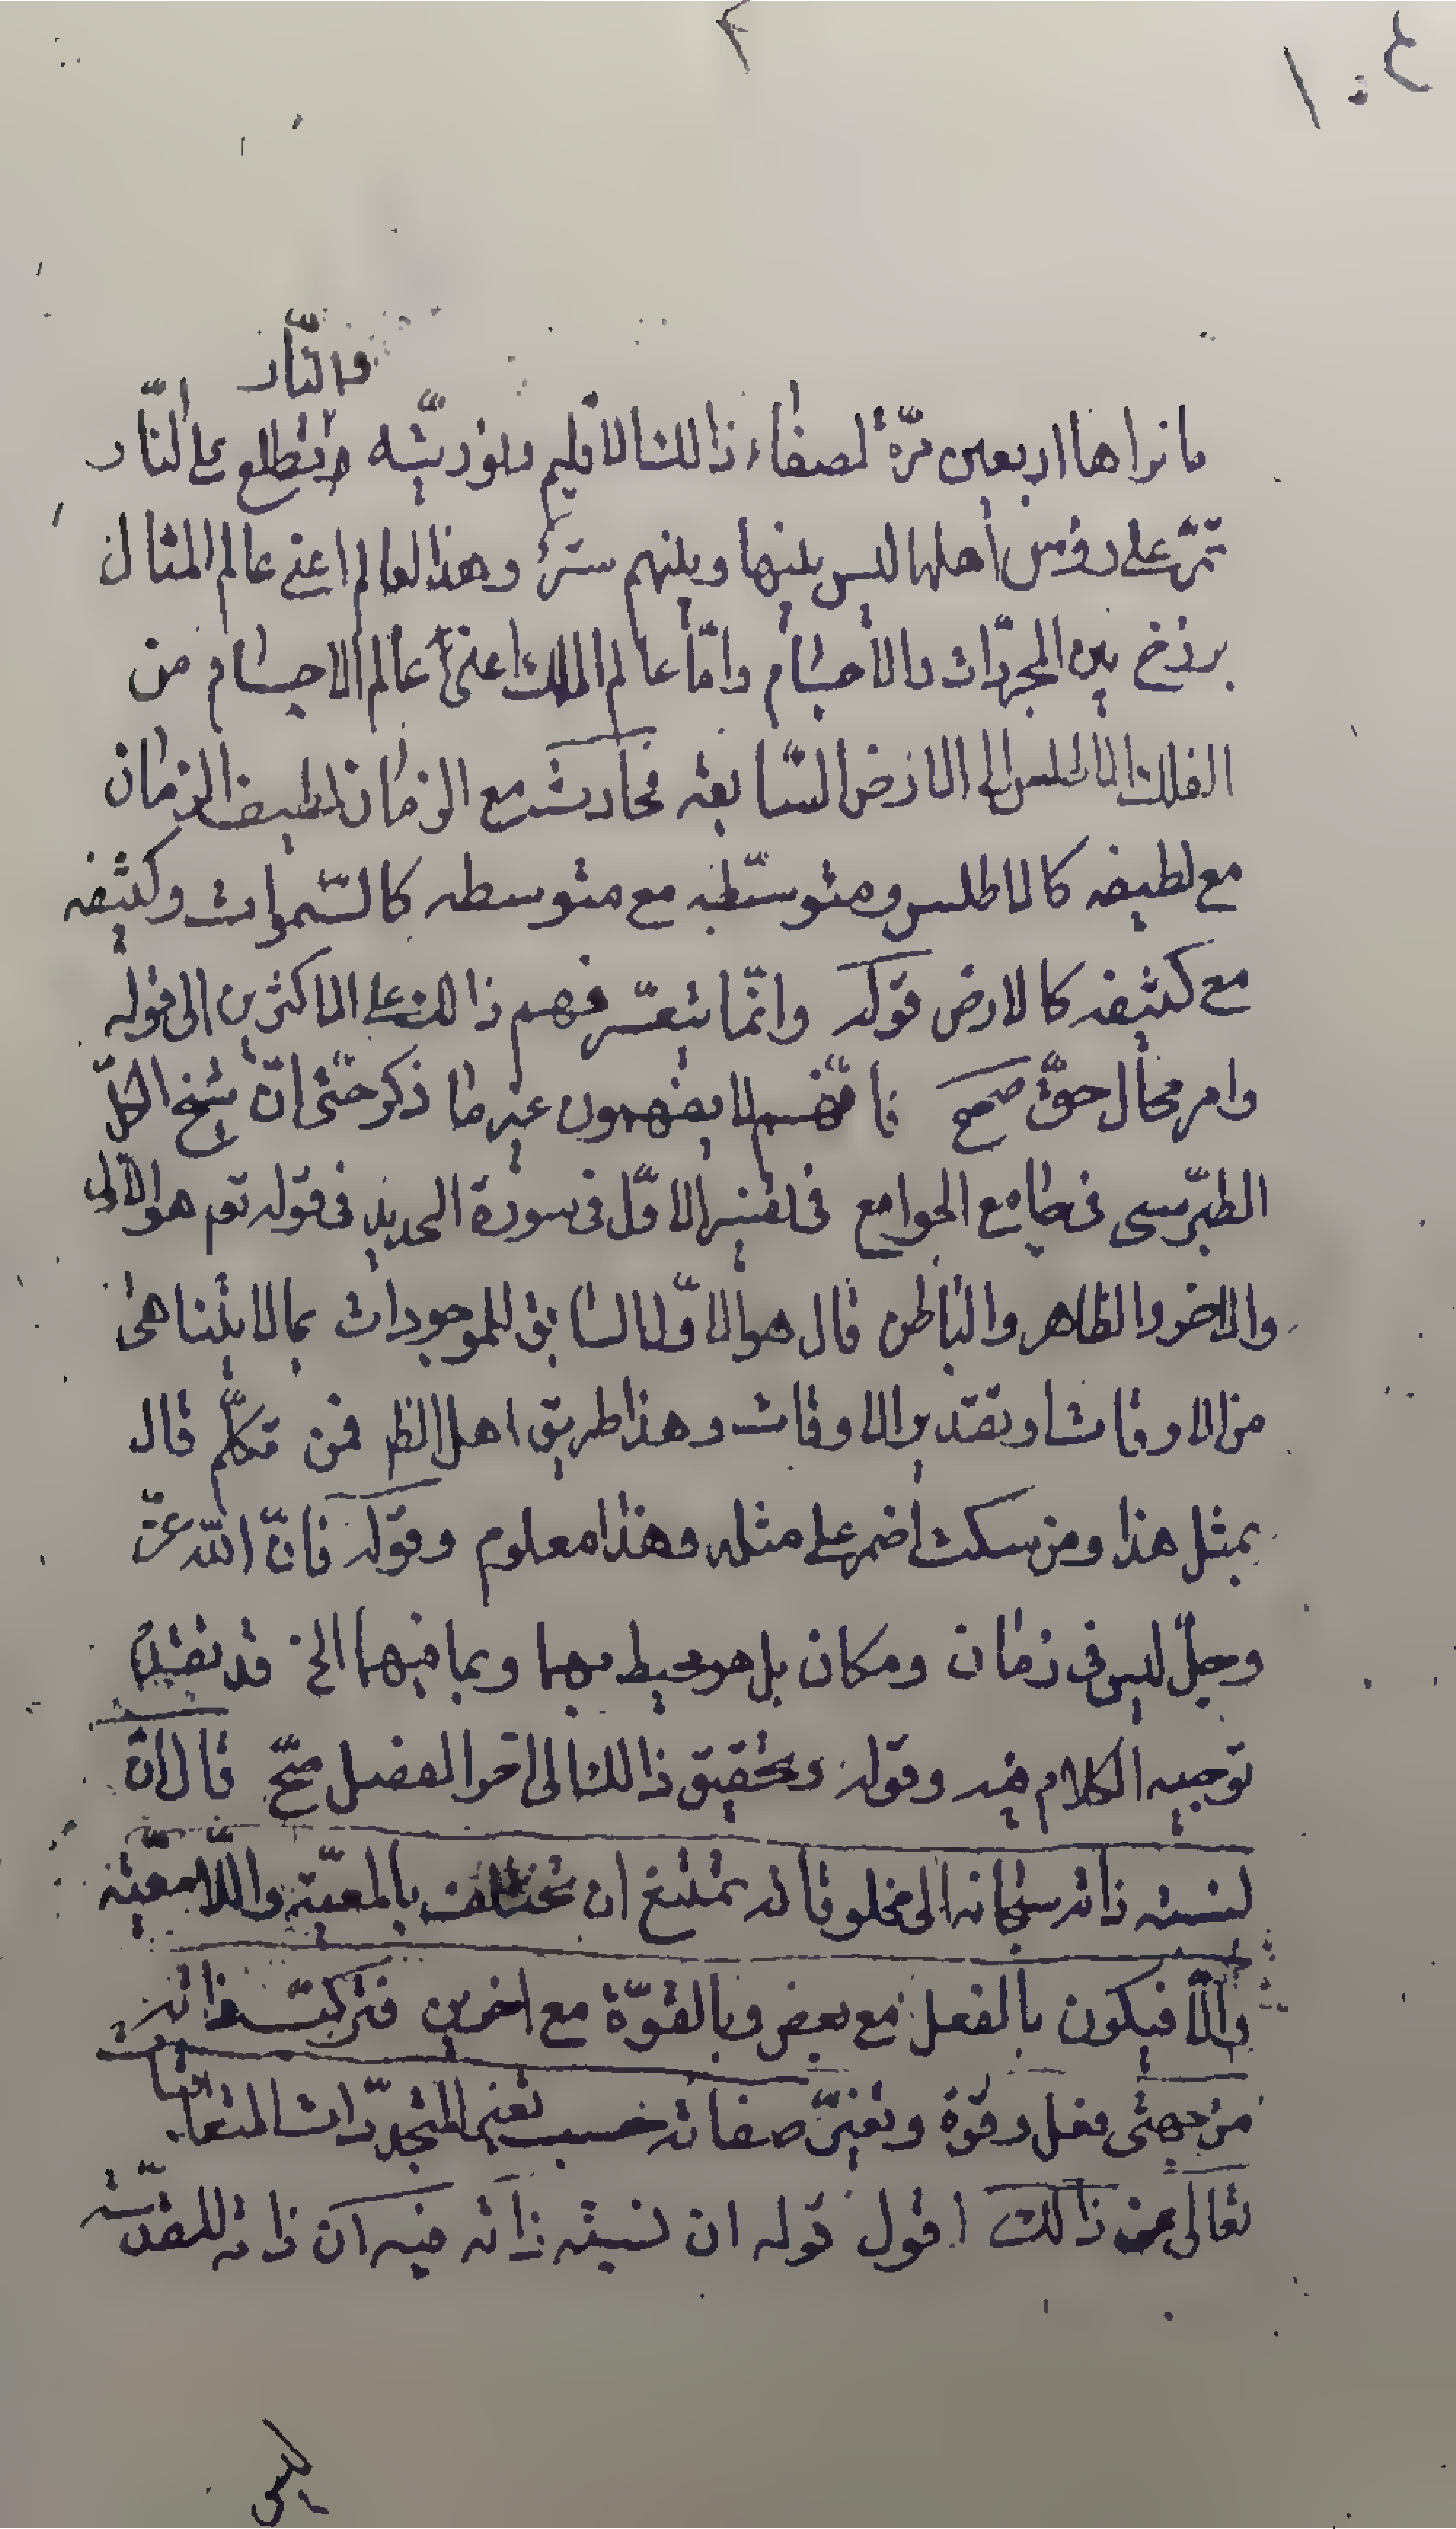 ٢
والنّار
ما نراها اربعين مرّة لصفاء ذلك الاقليم ونوريّته وتطلع على النّار
تمرّ على رؤس اهلها ليس بينها وبينهم ستر وهذا العالم اعنى عالم المثال
برزخ بين المجرّدات والاجسام وامّا عالم الملك اعنى عالم الاجسام من
الفلك الاطلس الى الارض السّابعة فحادث مع الزمان لطيف الزمان
مع لطيفه كالاطلس ومتوسّطه مع متوسطه كالسّموات وكثيفه
مع كثيفه كالارض قوله وانّما يتعسّر فهم ذلك على الاكثرين الى قوله
وامر محال حقّ صحيح فانّهم لا يفهمون غير ما ذكر حتّى انّ شيخ الكلّ
الطبرسى فى جامع الجوامع فى تفسير الاوّل فى سورة الحديد فى قوله تعم هو الاول
والاخر والظاهر والباطن قال هو الاوّل السابق للموجودات بما لا يتناهى
من الاوقات او تقدير الاوقات وهذا طريق اهل الظ فمن تكلّم قال
بمثل هذا ومن سكت اضمر على مثله وهذا معلوم وقوله فانّ اللّه عزّ
وجلّ ليس فى زمان ومكان بل هو محيط بهما وبما فيهما الخ قد تقدّم
توجيه الكلام فيه وقوله وتحقيق ذلك الى اخر الفصل صحّ قال انّ
نسبته ذاته سبحانه الى مخلوقاته يمتنع ان تختلف بالمعيّة واللّامعيّة
والّا فيكون بالفعل مع بعض وبالقوّة مع اخرين فتركّبت ذاته
من جهتى فعل وقوة وتغيّر صفاته حسب تغير المتجدّدات المتعاقبات
تعالى عن ذلك اقول قوله ان نسبة ذاته فيه ان ذاته المقدّسة
ليس